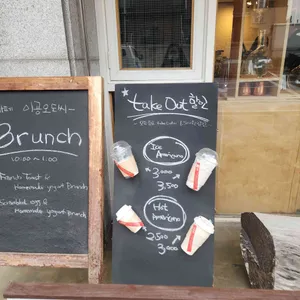 이공오도씨~
Brunch
10:00 ~ 1:00
French Toast &
Homemade yogurt Brunch
Scrambled egg &
Homemade yogurt Brunch
Take Out 할인
Ice
Americano
3,000
3,500
Hot
Americano
2,500
3,000